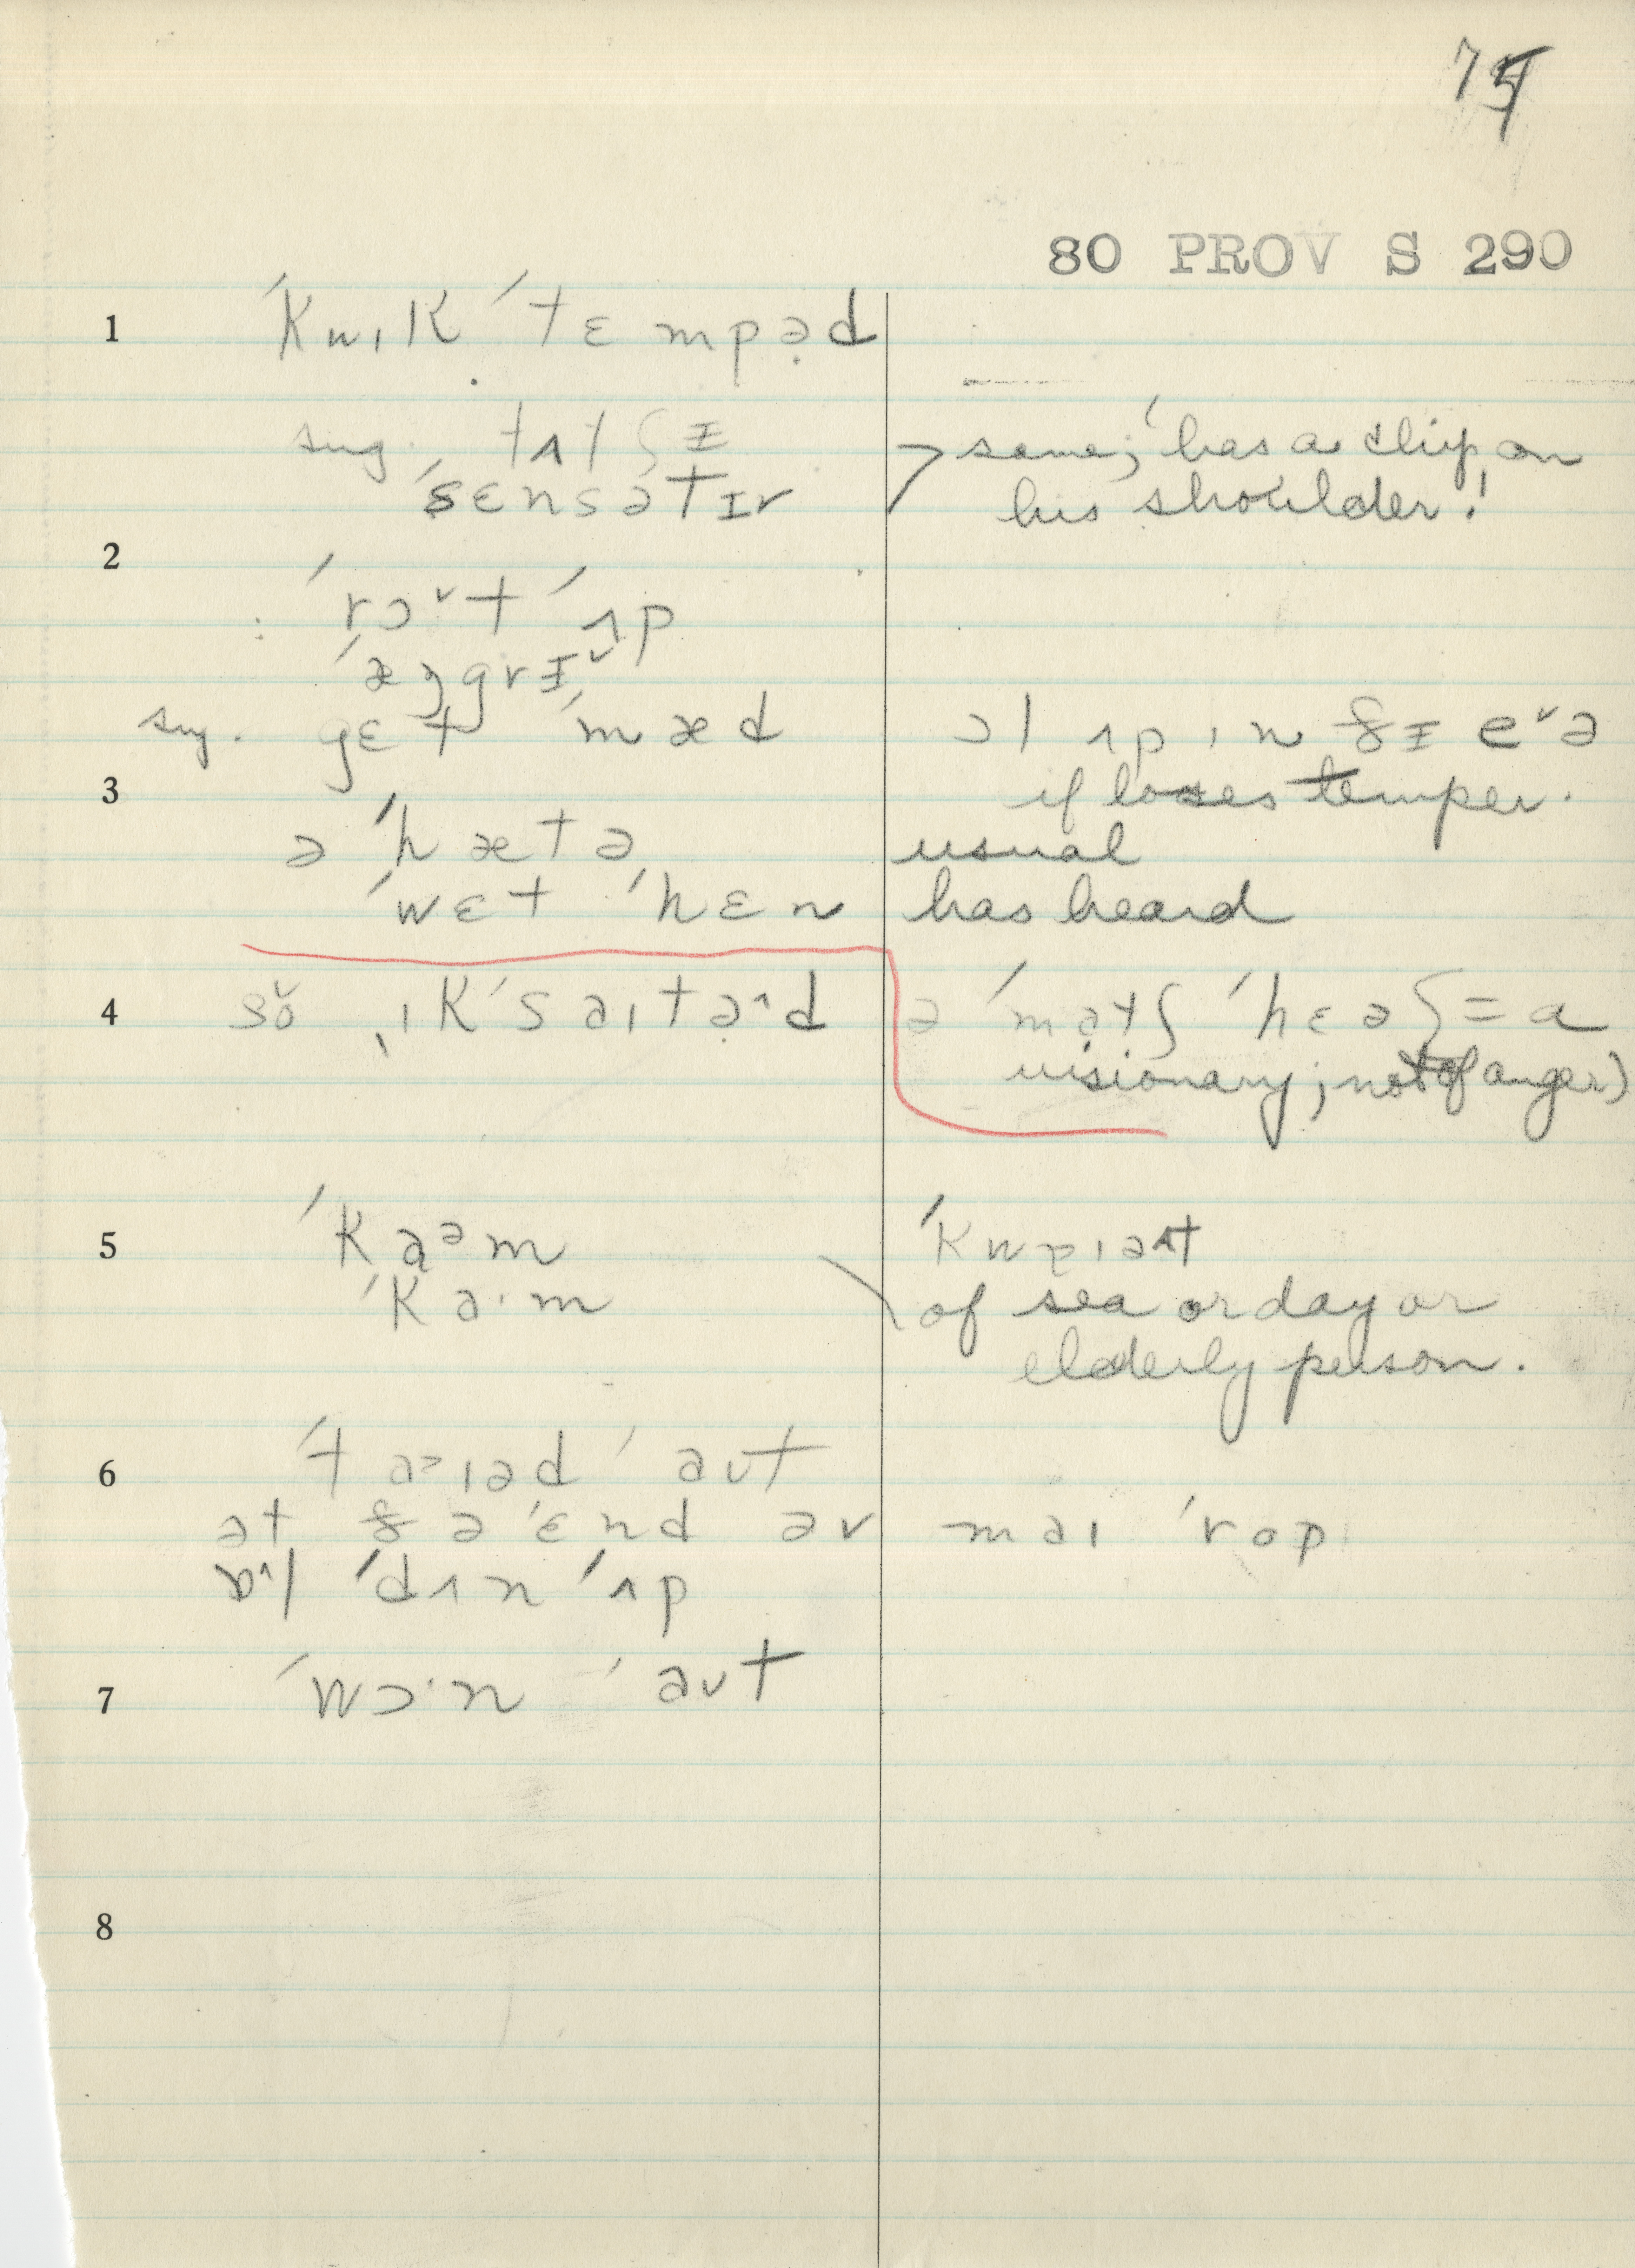 75
80 PROV S 290
1 ˈkwɪk ˈtɛmpəd
sug. tʌtʃɪ
ˈsɛnsətɪv
same; 'has a chip on
his shoulder!'
2 ˈrɔˇt ˈʌp
ˈæŋgrɪˇ
sug. gɛt ˈmæd ɔl ʌp ɪn ðɪ eˇə
if loses temper.
3 ə ˈhætə usual
ˈwɛt ˈhɛn has heard
4 ɪkˈsaɪtəˆd ə ˈmatʃ ˈhɛəʃ = a
visionary; not of anger)
5 ˈkaᵊm
ˈka·m of sea or day or
elderly person.
6 ˈtaɪəd ˈaʊt
ət ðə ˈɛnd əv maɪ ˈrop
ˈdʌn ˈʌp
7 ˈwɔ·n ˈaʊt
8